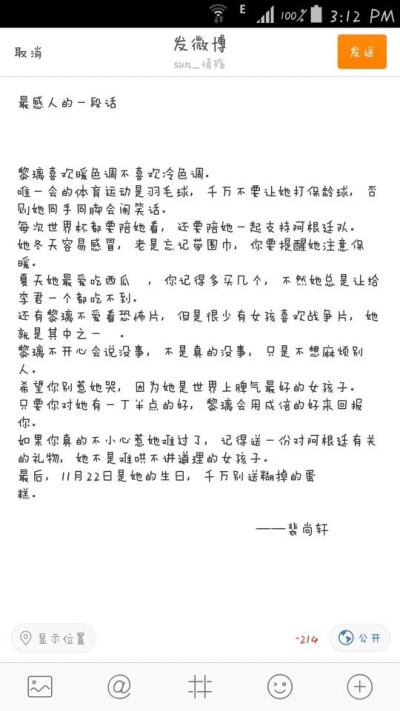 E 100% 3:12 PM
取消
发微博
发送
sun_情殇
最感人的一段话
黎璃喜欢暖色调不喜欢冷色调。
唯一会的体育运动是羽毛球，千万不要让她打保龄球，否
则她同手同脚会闹笑话。
每次世界杯都要陪她看，还要陪她一起支持阿根廷队。
她冬天容易感冒，老是忘记带围巾，你要提醒她注意保
暖。
夏天她最爱吃西瓜 ，你记得多买几个，不然她总是让给
李君一个都吃不到。
还有黎璃不爱看恐怖片，但是很少有女孩喜欢战争片，她
就是其中之一 。
黎璃不开心会说没事，不是真的没事，只是不想麻烦别
人。
希望你别惹她哭，因为她是世界上脾气最好的女孩子。
只要你对她有一丁半点的好，黎璃会用成倍的好来回报
你。
如果你真的不小心惹她难过了，记得送一份对阿根廷有关
的礼物，她不是难哄不讲道理的女孩子。
最后，11月22日是她的生日，千万别送糊掉的蛋
糕。
——裴尚轩
显示位置
-214
公开